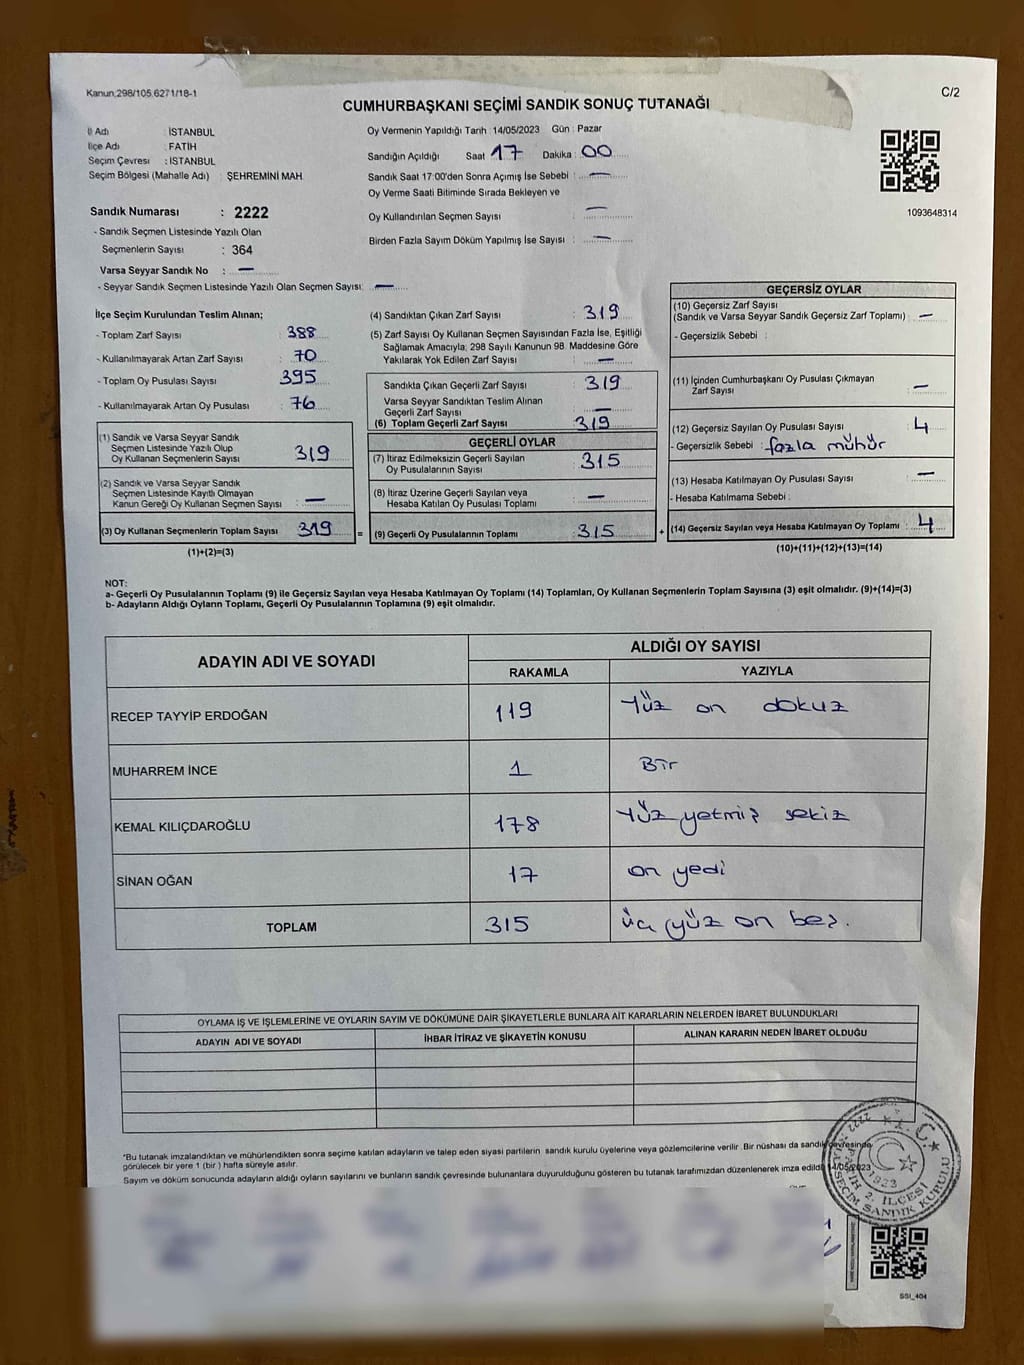 Kanun;298/105.6271/18-1
C/2
CUMHURBAŞKANI SEÇİMİ SANDIK SONUÇ TUTANAĞI
İl Adı : İSTANBUL
İlçe Adı : FATİH
Seçim Çevresi : İSTANBUL
Seçim Bölgesi (Mahalle Adı) : ŞEHREMİNİ MAH.
Oy Vermenin Yapıldığı Tarih : 14/05/2023 Gün : Pazar
Sandığın Açıldığı Saat 17 Dakika : 00
Sandık Saat 17:00'den Sonra Açımış İse Sebebi : —
Oy Verme Saati Bitiminde Sırada Bekleyen ve
Oy Kullandırılan Seçmen Sayısı : —
Birden Fazla Sayım Döküm Yapılmış İse Sayısı : —
1093648314
Sandık Numarası : 2222
- Sandık Seçmen Listesinde Yazılı Olan
Seçmenlerin Sayısı : 364
Varsa Seyyar Sandık No : —
- Seyyar Sandık Seçmen Listesinde Yazılı Olan Seçmen Sayısı: —
İlçe Seçim Kurulundan Teslim Alınan;
- Toplam Zarf Sayısı : 388
- Kullanılmayarak Artan Zarf Sayısı : 70
- Toplam Oy Pusulası Sayısı : 395
- Kullanılmayarak Artan Oy Pusulası : 76
(1) Sandık ve Varsa Seyyar Sandık
Seçmen Listesinde Yazılı Olup
Oy Kullanan Seçmenlerin Sayısı : 319
(2) Sandık ve Varsa Seyyar Sandık
Seçmen Listesinde Kayıtlı Olmayan
Kanun Gereği Oy Kullanan Seçmen Sayısı : —
(3) Oy Kullanan Seçmenlerin Toplam Sayısı : 319
(1)+(2)=(3)
=
(4) Sandıktan Çıkan Zarf Sayısı : 319
(5) Zarf Sayısı Oy Kullanan Seçmen Sayısından Fazla İse, Eşitliği
Sağlamak Amacıyla; 298 Sayılı Kanunun 98. Maddesine Göre
Yakılarak Yok Edilen Zarf Sayısı : —
Sandıkta Çıkan Geçerli Zarf Sayısı : 319
Varsa Seyyar Sandıktan Teslim Alınan
Geçerli Zarf Sayısı : —
(6) Toplam Geçerli Zarf Sayısı : 319
GEÇERLİ OYLAR
(7) İtiraz Edilmeksizin Geçerli Sayılan
Oy Pusulalarının Sayısı : 315
(8) İtiraz Üzerine Geçerli Sayılan veya
Hesaba Katılan Oy Pusulası Toplamı : —
(9) Geçerli Oy Pusulalarının Toplamı : 315
+
GEÇERSİZ OYLAR
(10) Geçersiz Zarf Sayısı
(Sandık ve Varsa Seyyar Sandık Geçersiz Zarf Toplamı) : —
- Geçersizlik Sebebi :
(11) İçinden Cumhurbaşkanı Oy Pusulası Çıkmayan
Zarf Sayısı : —
(12) Geçersiz Sayılan Oy Pusulası Sayısı : 4
- Geçersizlik Sebebi : fazla mühür
(13) Hesaba Katılmayan Oy Pusulası Sayısı : —
- Hesaba Katılmama Sebebi :
(14) Geçersiz Sayılan veya Hesaba Katılmayan Oy Toplamı : 4
(10)+(11)+(12)+(13)=(14)
NOT:
a- Geçerli Oy Pusulalarının Toplamı (9) ile Geçersiz Sayılan veya Hesaba Katılmayan Oy Toplamı (14) Toplamları, Oy Kullanan Seçmenlerin Toplam Sayısına (3) eşit olmalıdır. (9)+(14)=(3)
b- Adayların Aldığı Oyların Toplamı, Geçerli Oy Pusulalarının Toplamına (9) eşit olmalıdır.
ADAYIN ADI VE SOYADI
ALDIĞI OY SAYISI
RAKAMLA YAZIYLA
RECEP TAYYİP ERDOĞAN 119 Yüz on dokuz
MUHARREM İNCE 1 Bir
KEMAL KILIÇDAROĞLU 178 Yüz yetmiş sekiz
SİNAN OĞAN 17 on yedi
TOPLAM 315 üç yüz on beş.
OYLAMA İŞ VE İŞLEMLERİNE VE OYLARIN SAYIM VE DÖKÜMÜNE DAİR ŞİKAYETLERLE BUNLARA AİT KARARLARIN NELERDEN İBARET BULUNDUKLARI
ADAYIN ADI VE SOYADI İHBAR İTİRAZ VE ŞİKAYETİN KONUSU ALINAN KARARIN NEDEN İBARET OLDUĞU
*Bu tutanak imzalandıktan ve mühürlendikten sonra seçime katılan adayların ve talep eden siyasi partilerin sandık kurulu üyelerine veya gözlemcilerine verilir. Bir nüshası da sandık çevresinde
görülecek bir yere 1 (bir) hafta süreyle asılır.
Sayım ve döküm sonucunda adayların aldığı oyların sayılarını ve bunların sandık çevresinde bulunanlara duyurulduğunu gösteren bu tutanak tarafımızdan düzenlenerek imza edildi. 14/05/2023
T.C.
2222
FATİH 2. İLÇESİ
1923
SEÇİM SANDIK KURULU
SSI_404